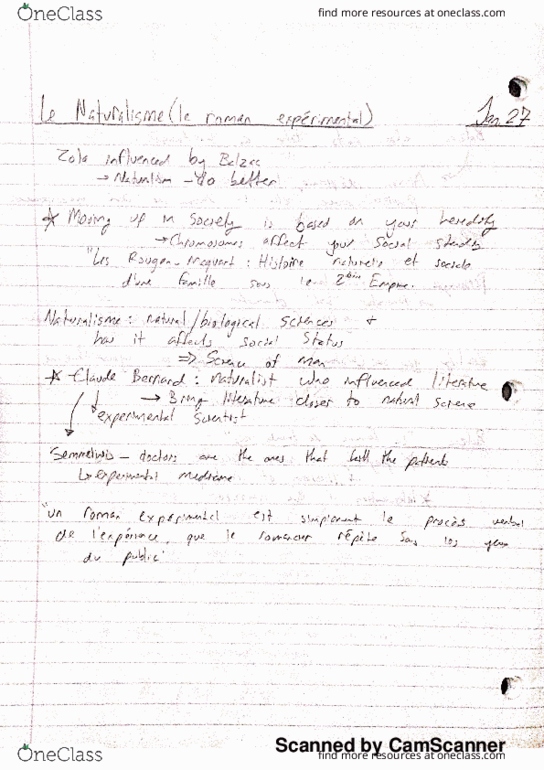 OneClass
find more resources at oneclass.com
Le Naturalisme (le roman expérimental)
Jan 27
Zola influenced by Balzac
→ Naturalism - do better
* Moving up in Society is based on your heredity
→ Chromosomes affect your social standing
"Les Rougon-Macquart: Histoire naturelle et sociale
d'une famille sous le 2ème Empire.
Naturalisme: natural/biological sciences +
how it affects social status
⇒ Science of man
* Claude Bernard: naturalist who influenced literature
→ Bring literature closer to natural science
experimental scientist
Semmelweis - doctors are the ones that kill the patients
↳ experimental medicine
"un roman expérimental est simplement le procès verbal
de l'expérience, que le romancier répète sous les yeux
du public"
Scanned by CamScanner
OneClass
find more resources at oneclass.com